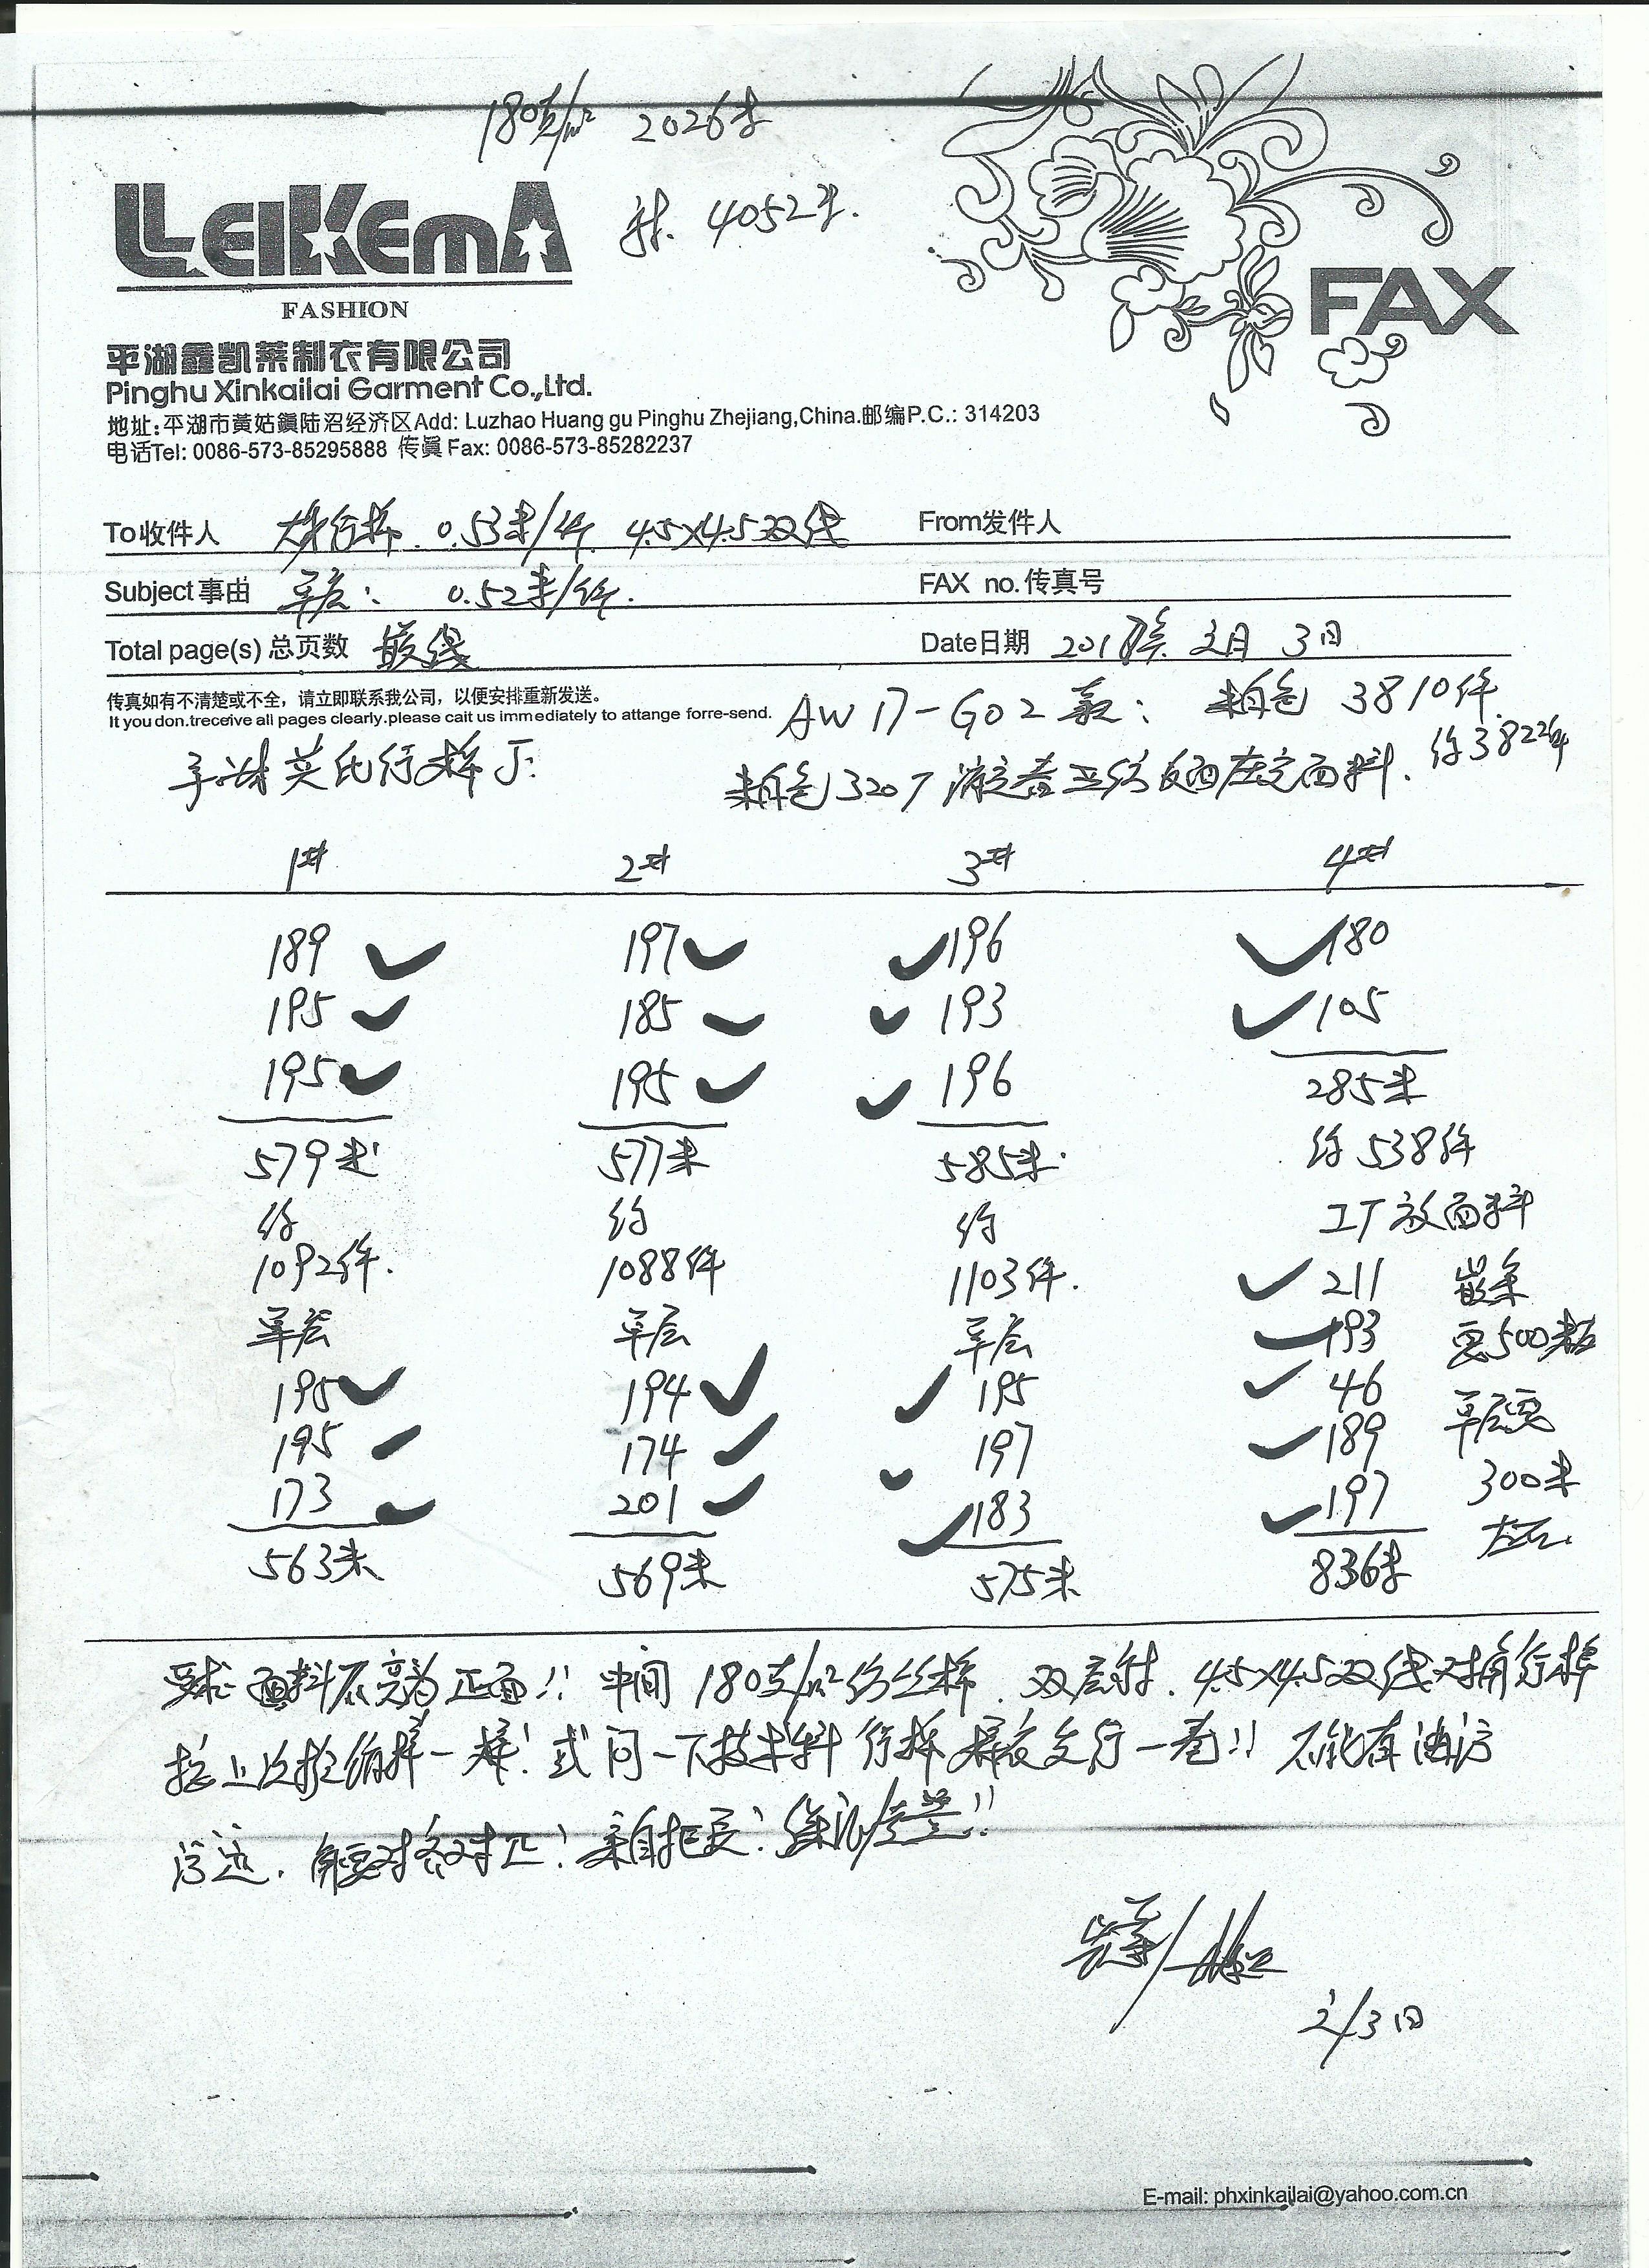 180克/m² 2026米
4052米.
LEIKEMA
FASHION
FAX
平湖鑫凯莱制衣有限公司
Pinghu Xinkailai Garment Co.,Ltd.
地址:平湖市黄姑鎭陆沼经济区Add: Luzhao Huang gu Pinghu Zhejiang,China.邮编P.C.: 314203
电话Tel: 0086-573-85295888 传眞Fax: 0086-573-85282237
To收件人 大身行棉 0.53米/件 4.5×4.5双线 From发件人
Subject事由 单层: 0.52米/件. FAX no.传真号
Total page(s)总页数 嵌线 Date日期 2月 3日
传真如有不清楚或不全，请立即联系我公司，以便安排重新发送。
It you don.treceive all pages clearly.please cait us immediately to attange forre-send.
AW17-G02款: 米白色 3810件
平湖英氏行棉厂: 米白色320T 面料. 约3822件
1# 2# 3# 4#
189 197 196 180
195 185 193 105
195 195 196 285米
579米 577米 585米 约538件
约 约 约 工厂放面料
1092件. 1088件 1103件. 211 嵌条
单层 单层 单层 193 要500米左右
195 194 195 46 单层要
195 174 197 189 300米
173 201 183 197 左右.
563米 569米 575米 836米
要求: 面料 为正面!! 中间180克/m² 棉. 双层 4.5×4.5双线对角行棉
按上次 一样! 或问一下技术科 行棉 一卷!! 不能有油污
污迹. 对匹!
2/3日
E-mail: phxinkailai@yahoo.com.cn